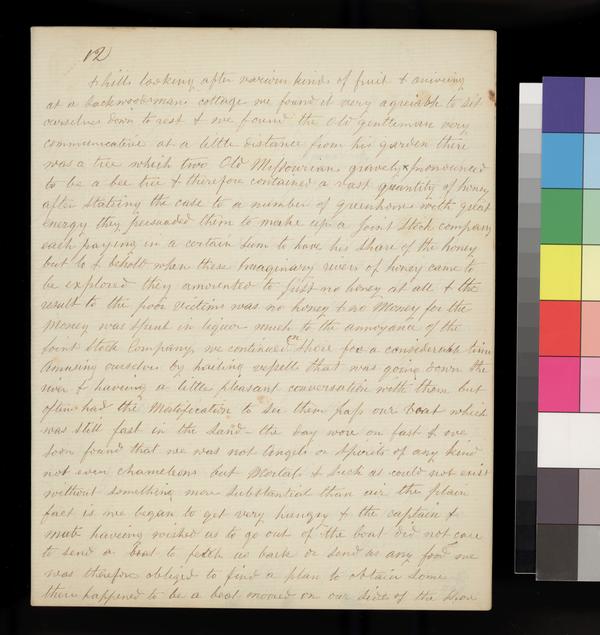 12
& hills looking after various kinds of fruit & ariveing
at a backwoodsmans cottage we found it very agreiable to sit
ourselves down to rest & we found the Old gentleman very
communicative at a little distance from his garden there
was a tree which two Old Missourians gravely pronounced
to be a bee tree & therefore contained a vast quantity of honey
after stateing the case to a number of greenhorns with great
energy they persuaded them to make up a Joint Stock company
each paying in a certain sum to have his share of the honey
but lo & behold when these Imaginary rivers of honey came to
be explored they amounted to just no honey at all & the
result to the poor victims was no honey & no Money for the
Money was spent in liquor much to the annoyance of the
Joint Stock Company, we continued on shore for a considerable time
Amusing ourselves by hailing vessells that was going down the
river & haveing a little pleasant conversation with them but
often had the Mortification to see them pass our boat which
was still fast in the Sand - the day wore on fast & we
soon found that we was not Angels or Spirits of any kind
not even chameleons but Mortals & such as could not exist
without something more substantial than air the plain
fact is we began to get very hungry & the captain &
mate haveing wished us to go out of the boat did not care
to send a boat to fetch us back or send us any food we
was therefore obliged to find a plan to obtain some
there happened to be a boat moored on our side of the shore